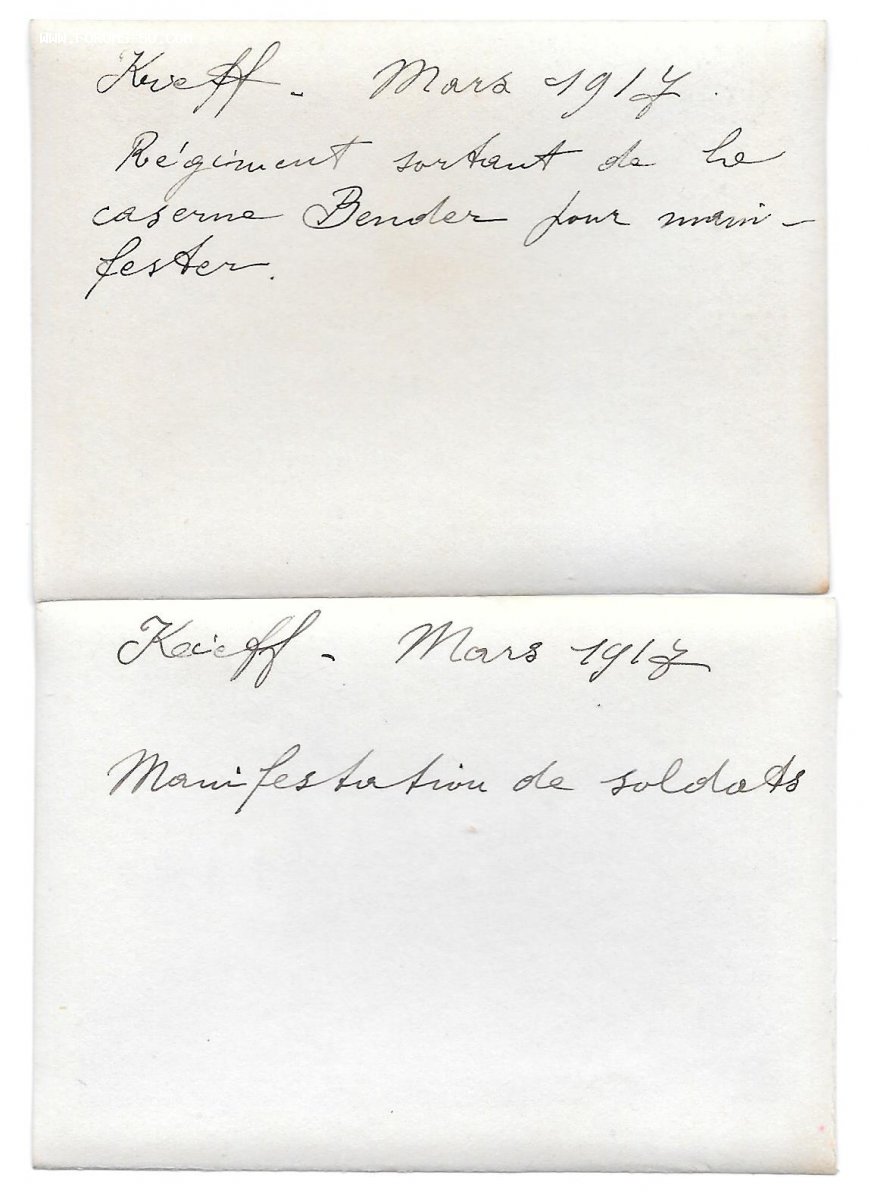 Kieff - Mars 1917.
Régiment sortant de la
caserne Bender pour mani-
fester.
Kieff - Mars 1917
Manifestation de soldats